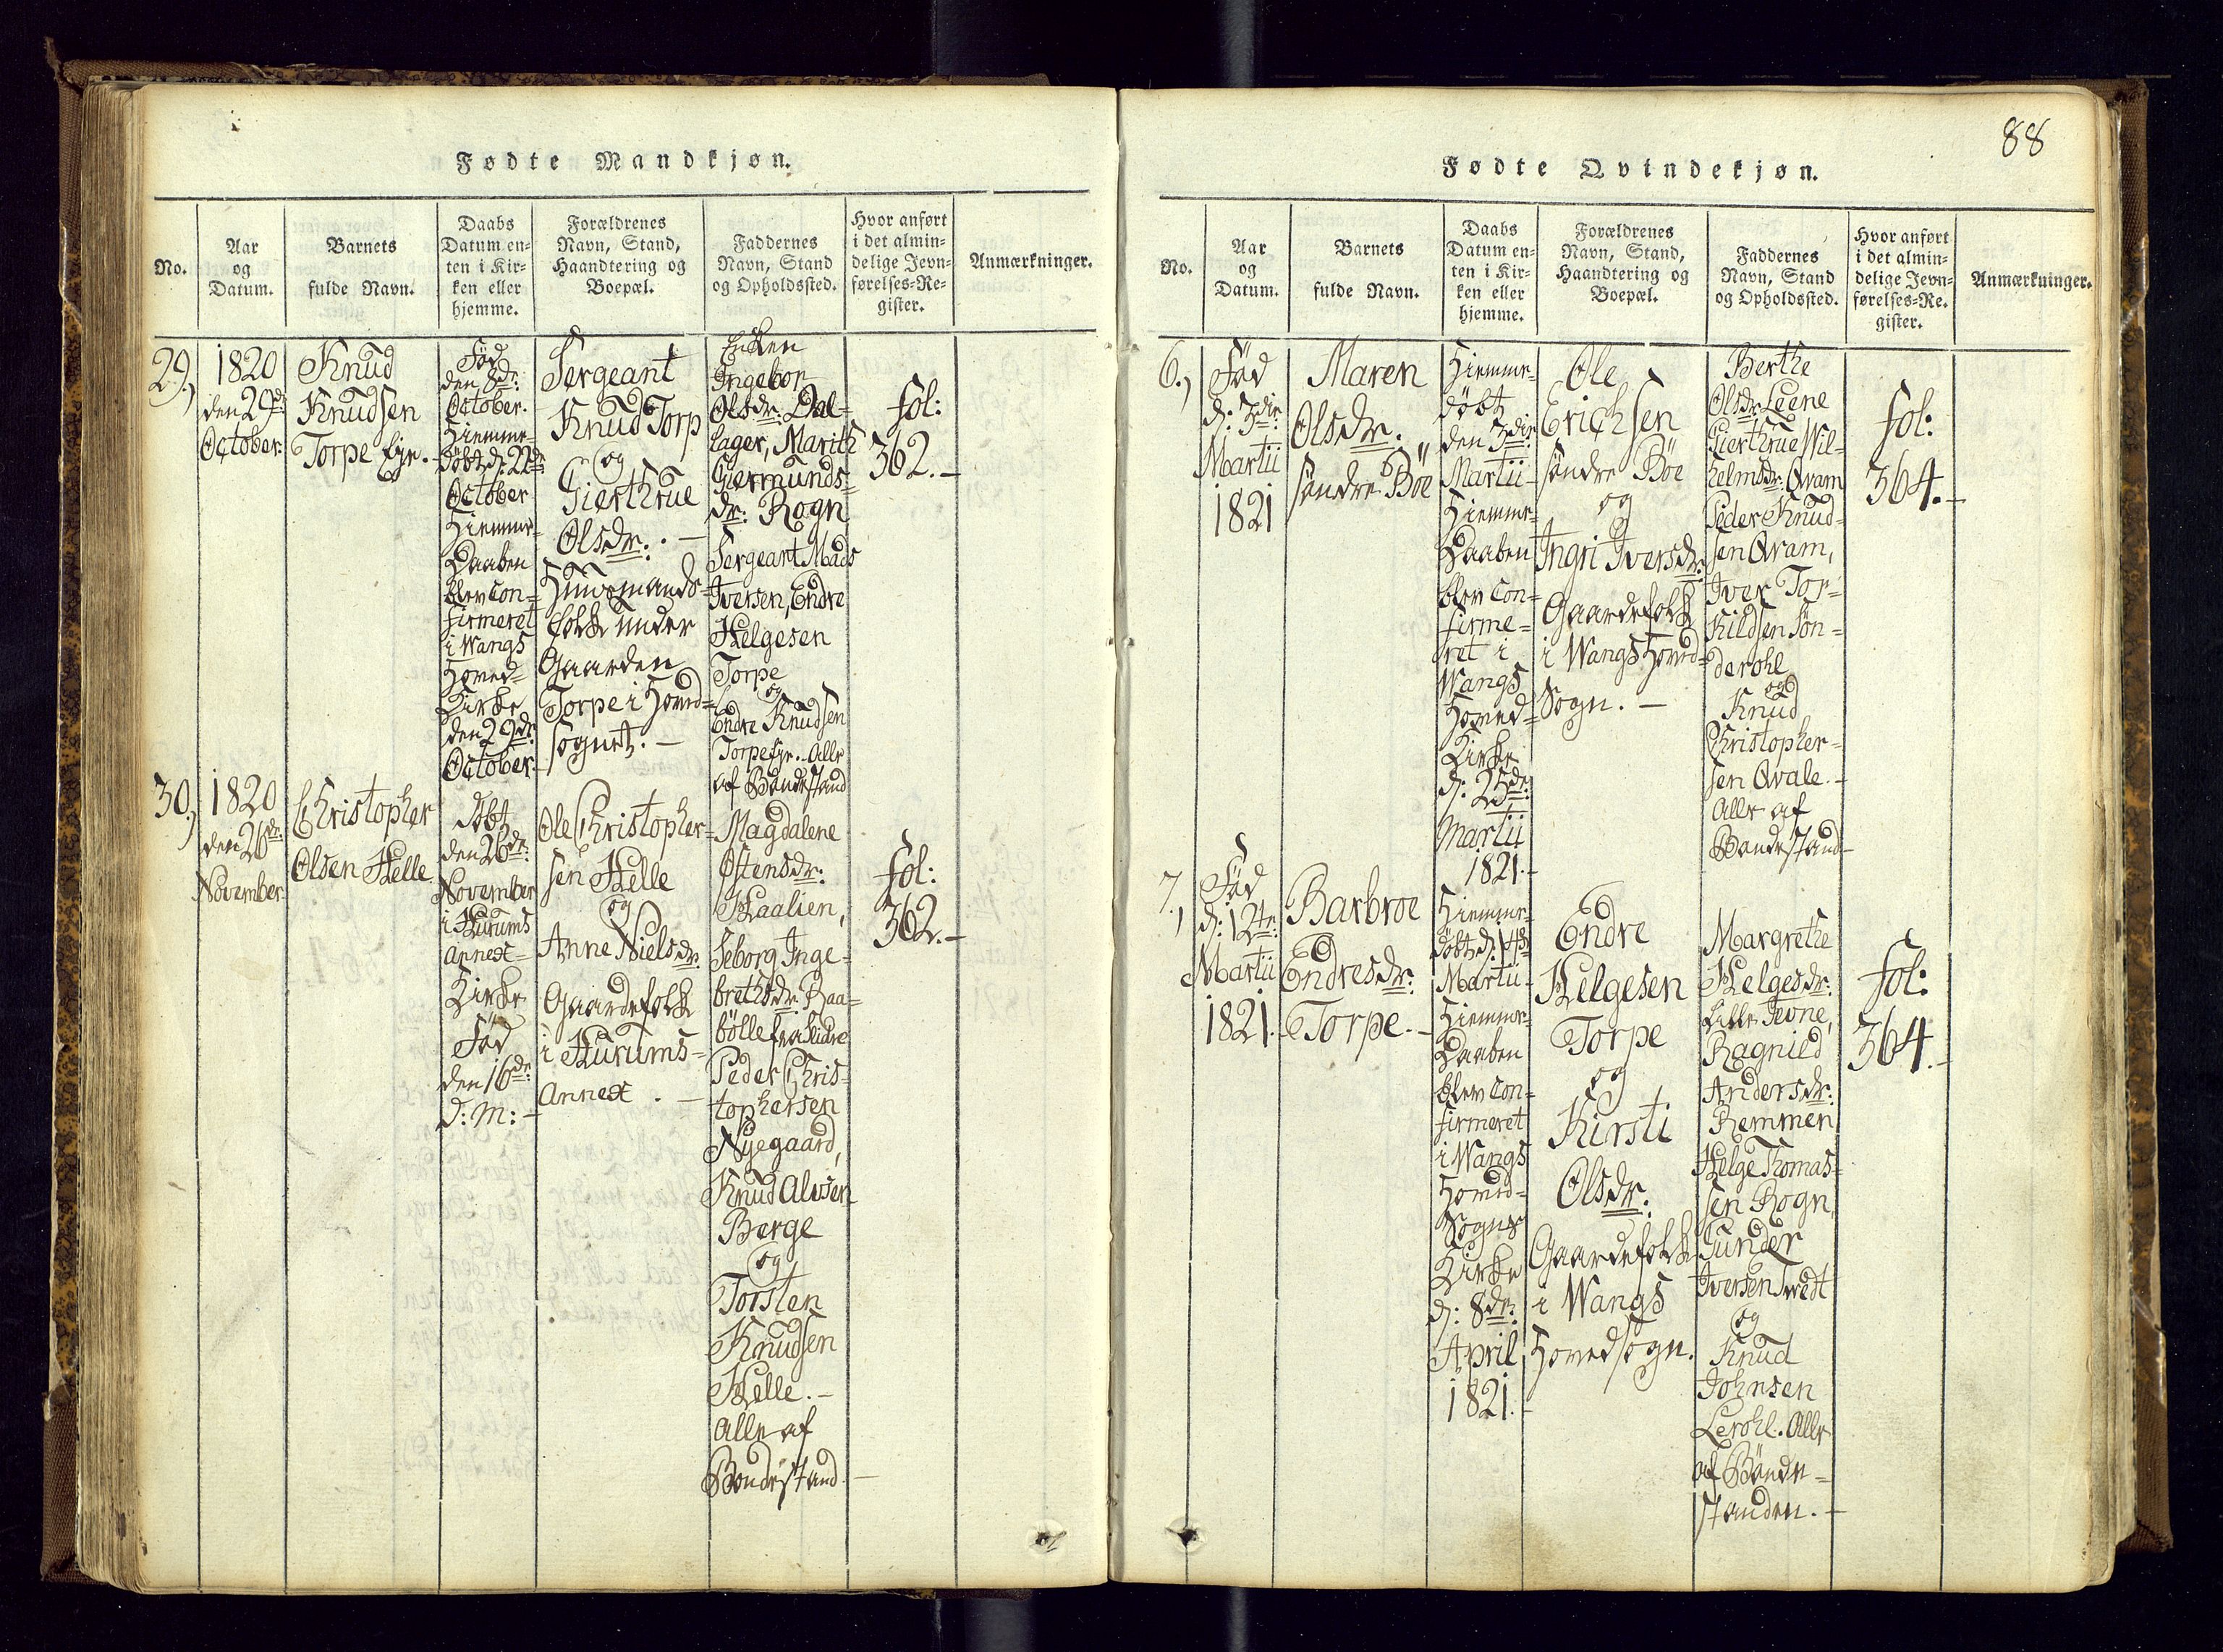 Fødte Mandkjøn.
No.
Aar
og
Datum.
Barnets
fulde Navn.
Daabs
Datum en-
ten i Kir-
ken eller
hjemme.
Forældrenes
Navn, Stand,
Haandtering og
Boepæl.
Faddernes
Navn, Stand
og Opholdssted.
Hvor anført
i det almin-
delige Jevn-
førelses-Re-
gister.
Anmærkninger.
29.,
1820
den 29de
October.
Knud
Knudsen
Torpe Eje.
Fød
den 8de:
October.
Hiemme-
döbt d: 22de
October
Hiemme-
Daaben
blev Con-
firmeret
i Wangs
Hoved-
Kirke
den 29de
October.
Sergeant
Knud Torp
og
Gierthrue
Olsdr. . -
Huusmands-
folk under
Gaarden
Torpe i Hoved-
sognet. -
Enken
Ingebor
Olsdr: Dal-
lager, Marith
Giermunds-
dr: Rogn
Sergeant Mads
Iversen, Endre
Helgesen
Torpe
og
Endre Knudsen
Torpe Eje. Alle
af Bondestand
fol:
362. -
30.,
1820
den 26de
November.
Christopher
Olsen Helle.
Döbt
den 26de:
November
i Hurums
Annex-
Kirke
Fød
den 16de:
d: M: -
Ole Christopher-
sen Helle
og
Anne Nielsdr.
Gaardefolk
i Hurums-
Annex . -
Magdalene
Ostensdr:
Haalien,
Seborg Inge-
brethsdr. Raa-
bölle fra Slidre
Peder Chris-
tophersen
Nyegaard,
Knud Alvsen
Berge
og
Torsten
Knudsen
Helle. -
Alle af
Bondestand. -
fol:
362. -
88
Fødte Qvindekjøn.
No.
Aar
og
Datum.
Barnets
fulde Navn.
Daabs
Datum en-
ten i Kir-
ken eller
hjemme.
Forældrenes
Navn, Stand,
Haandtering og
Boepæl.
Faddernes
Navn, Stand
og Opholdssted.
Hvor anført
i det almin-
delige Jevn-
førelses-Re-
gister.
Anmærkninger.
6.,
Fød
d: 3die:
Martii
1821
Maren
Olsdr.
söndre Böe
Hiemme-
döbt
den 3die
Martii-
Hiemme-
Daaben
blev Con-
firme-
ret i
Wangs
Hoved-
Kirke
d: 25de:
Martii
1821. -
Ole
Erichsen
söndre Böe
og
Ingri Iversdr.
Gaardefolk
i Wangs Hoved-
Sogn. -
Berthe
Olsdr. Leene
Gierthrue Wil-
helmsdr. Qvam
Peder Knud-
sen Qvam,
Iver Tor-
kildsen Sön-
derohl
og
Knud
Christopher-
sen Qvale. -
Alle af
Bondestand -
fol:
364. -
7.,
Fød
d: 12te:
Martii
1821.
Barbroe
Endresdr:
Torpe. -
Hiemme-
döbt d: 14de
Martii-
Hiemme-
Daaben
blev Con-
firmeret
i Wangs
Hoved-
Sogns
Kirke
d: 8de:
April
1821. -
Endre
Helgesen
Torpe
og
Kirsti
Olsdr:
Gaardefolk
i Wangs
Hovedsogn.
Margrethe
Helgesdr:
Lille Jevne,
Ragnild
Andersdr:
Remmen
Helge Thomas-
sen Rogn,
Gunder
Iversen Twedt
og
Knud
Johnsen
Lerohl. Alle
af Bonde-
standen. -
fol:
364. -